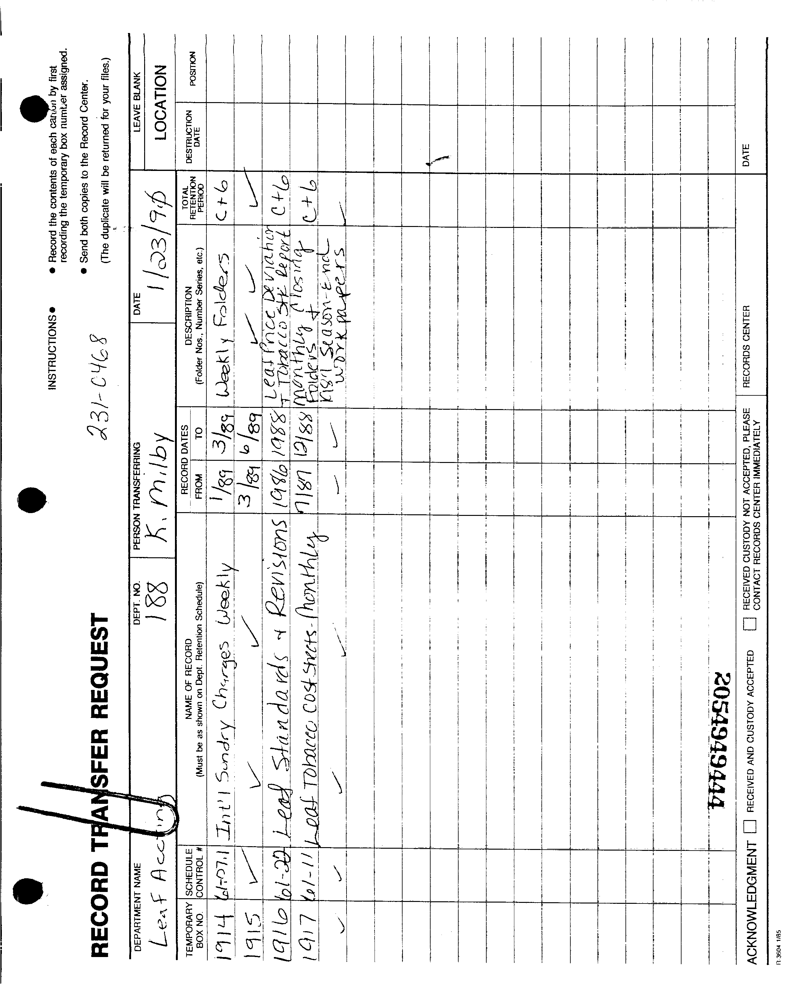 RECORD TRANSFER REQUEST
INSTRUCTIONS •
• Record the contents of each carton by first
recording the temporary box number assigned.
• Send both copies to the Record Center.
(The duplicate will be returned for your files.)
231-0468
DEPARTMENT NAME
Leaf Accting
DEPT. NO.
188
PERSON TRANSFERRING
K. Milby
DATE
1/23/90
LEAVE BLANK
LOCATION
TEMPORARY BOX NO.
SCHEDULE CONTROL #
NAME OF RECORD
(Must be as shown on Dept. Retention Schedule)
RECORD DATES
FROM TO
DESCRIPTION
(Folder Nos., Number Series, etc.)
TOTAL RETENTION PERIOD
DESTRUCTION DATE
POSITION
1914 61-07.1 Int'l Sundry Charges Weekly 1/89 3/89 Weekly Folders C+6
1915 ✓ ✓ ✓ 3/89 6/89 ✓ ✓ ✓
1916 61-22 Leaf Standards + Revisions 1986 1988 Leaf Price Deviation C+6
+ Tobacco Stk Report
1917 61-11 Leaf Tobacco Cost Sheets-Monthly 7/87 12/88 Monthly Closing C+6
Folders +
✓ ✓ ✓ ✓ ✓ ✓ Season-End ✓
Workpapers
2054949444
ACKNOWLEDGMENT
☐ RECEIVED AND CUSTODY ACCEPTED
☐ RECEIVED CUSTODY NOT ACCEPTED, PLEASE
CONTACT RECORDS CENTER IMMEDIATELY
RECORDS CENTER
DATE
R-3604 1/85